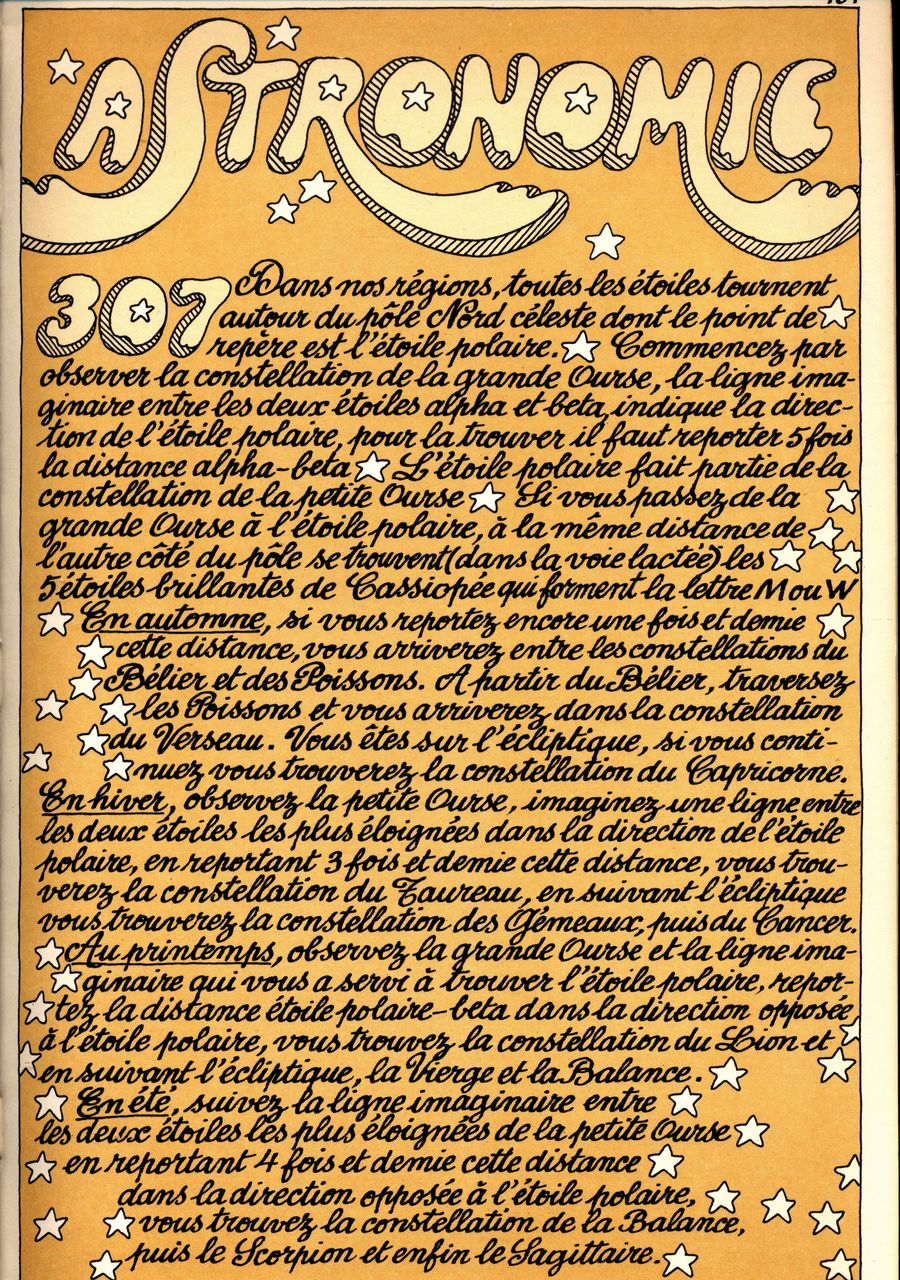 ASTRONOMIE
307 Dans nos régions, toutes les étoiles tournent
autour du pôle Nord céleste dont le point de
repère est l'étoile polaire. Commencez par
observer la constellation de la grande Ourse, la ligne ima-
ginaire entre les deux étoiles alpha et beta, indique la direc-
tion de l'étoile polaire, pour la trouver il faut reporter 5 fois
la distance alpha-beta L'étoile polaire fait partie de la
constellation de la petite Ourse Si vous passez de la
grande Ourse à l'étoile polaire, à la même distance de
l'autre côté du pôle se trouvent (dans la voie lactée) les
5 étoiles brillantes de Cassiopée qui forment la lettre M ou W
En automne, si vous reportez encore une fois et demie
cette distance, vous arriverez entre les constellations du
Bélier et des Poissons. A partir du Bélier, traversez
les Poissons et vous arriverez dans la constellation
du Verseau. Vous êtes sur l'écliptique, si vous conti-
nuez vous trouverez la constellation du Capricorne.
En hiver, observez la petite Ourse, imaginez une ligne entre
les deux étoiles les plus éloignées dans la direction de l'étoile
polaire, en reportant 3 fois et demie cette distance, vous trou-
verez la constellation du Taureau, en suivant l'écliptique
vous trouverez la constellation des Gémeaux, puis du Cancer.
Au printemps, observez la grande Ourse et la ligne ima-
ginaire qui vous a servi à trouver l'étoile polaire, repor-
tez la distance étoile polaire-beta dans la direction opposée
à l'étoile polaire, vous trouvez la constellation du Lion et
en suivant l'écliptique, la Vierge et la Balance.
En été, suivez la ligne imaginaire entre
les deux étoiles les plus éloignées de la petite Ourse
en reportant 4 fois et demie cette distance
dans la direction opposée à l'étoile polaire,
vous trouvez la constellation de la Balance,
puis le Scorpion et enfin le Sagittaire.